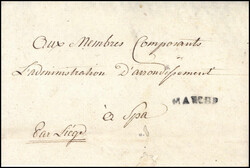 Aux Membres Composants
L'administration D'arrondissement
à Spa
Par Liége